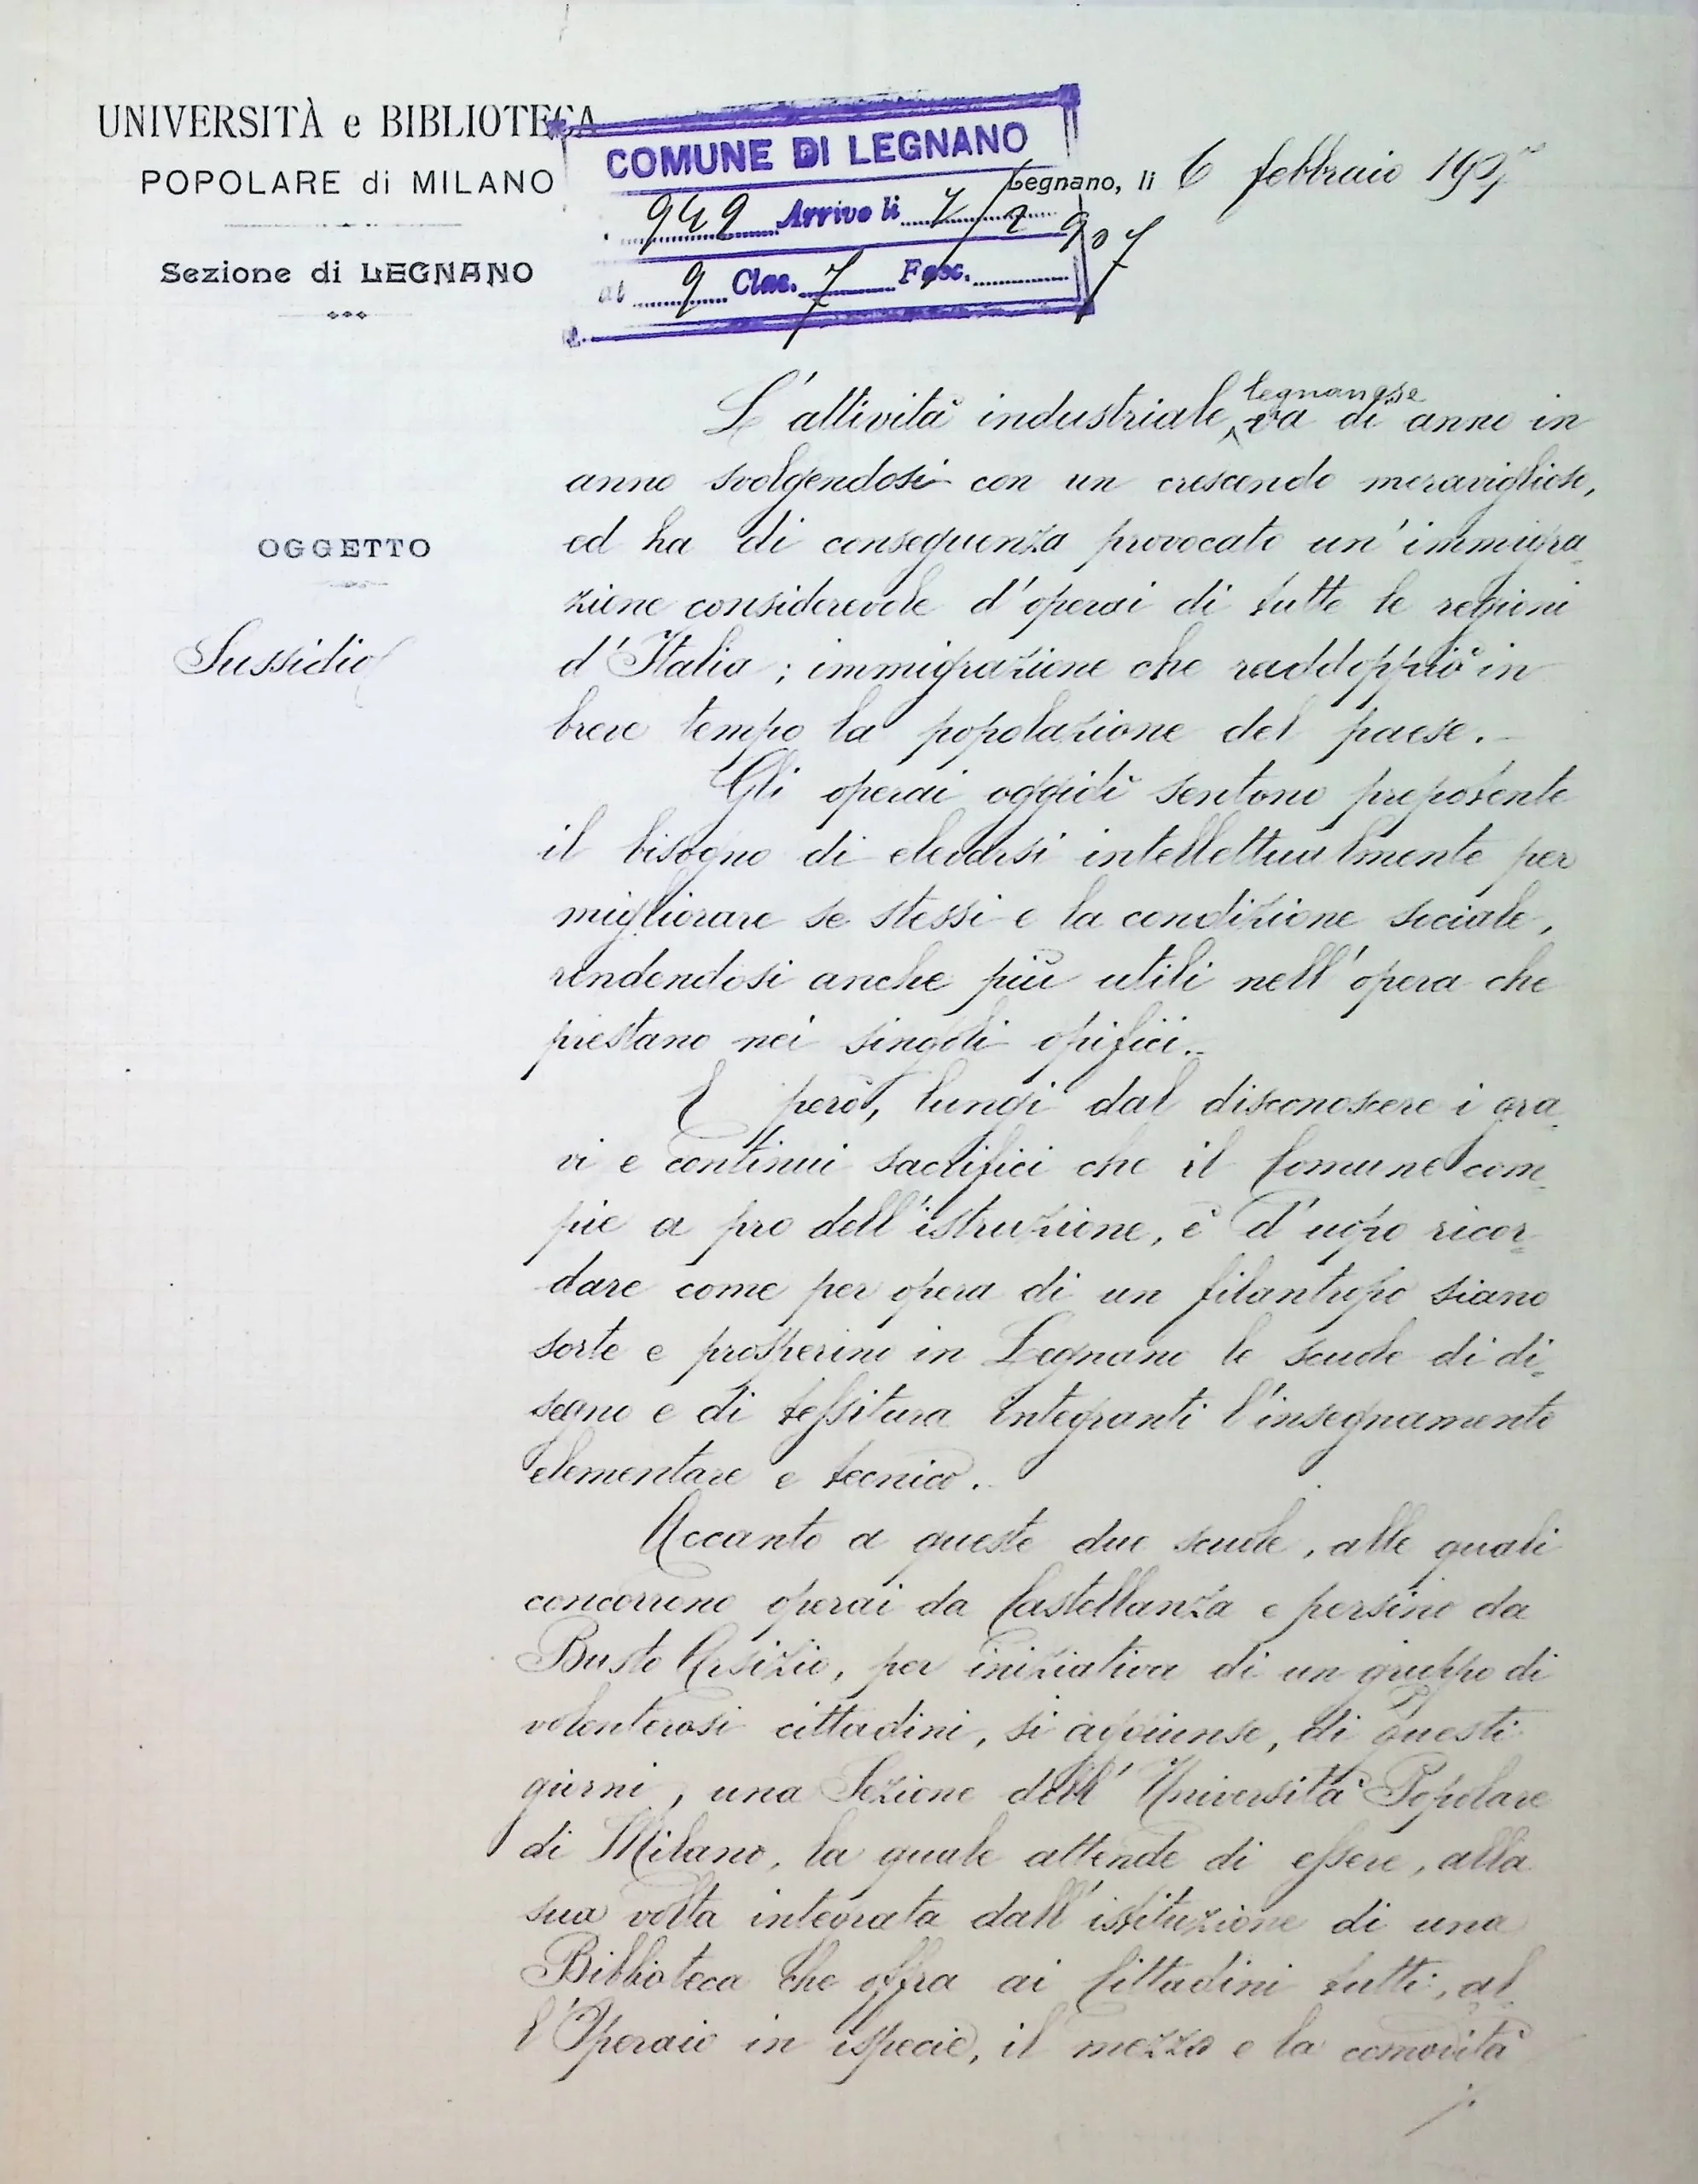 UNIVERSITÀ e BIBLIOTECA
POPOLARE di MILANO
Sezione di LEGNANO
COMUNE DI LEGNANO
949 Arrivo li 7/2 907
9 Clas. 7 Fasc.
Legnano, li 6 febbraio 1907
OGGETTO
Sussidio
legnanese
L'attività industriale va di anno in
anno svolgendosi con un crescendo meraviglioso,
ed ha di conseguenza provocato un'immigra
zione considerevole d'operai di tutte le regioni
d'Italia; immigrazione che raddoppiò in
breve tempo la popolazione del paese.-
Gli operai oggidì sentono prepotente
il bisogno di elevarsi intellettualmente per
migliorare se stessi e la condizione sociale,
rendendosi anche più utili nell'opera che
prestano nei singoli opifici.-
E però, lungi dal disconoscere i gra-
vi e continui sacrifici che il Comune com-
pie a pro dell'istruzione, è d'uopo ricor-
dare come per opera di un filantropo siano
sorte e prosperino in Legnano le scuole di di-
segno e di tessitura integranti l'insegnamento
elementare e tecnico.
Accanto a queste due scuole, alle quali
concorrono operai da Castellanza e persino da
Busto Arsizio, per iniziativa di un gruppo di
volonterosi cittadini, si aggiunse, di questi
giorni, una Sezione dell'Università Popolare
di Milano, la quale attende di essere, alla
sua volta integrata dall'istituzione di una
Biblioteca che offra ai Cittadini tutti, al-
l'Operaio in ispecie, il mezzo e la comodità